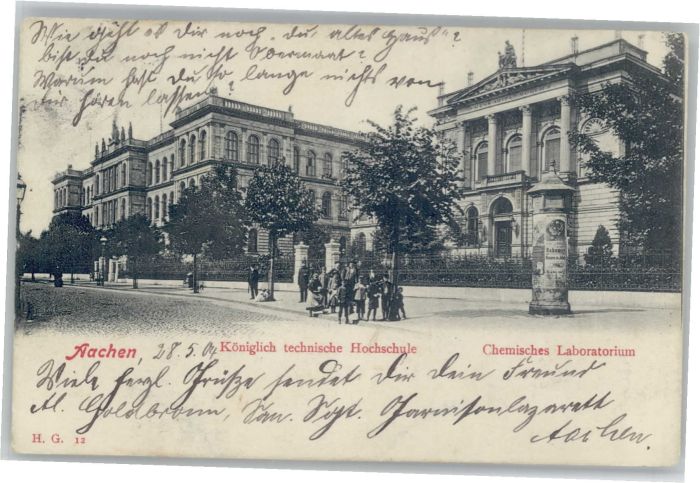 Wie geht es Dir noch, du „altes Haus"?
bist du noch nicht Obermaat?
Warum hast du so lange nichts von
dir hören lassen?
Aachen, 28.5.04 Königlich technische Hochschule Chemisches Laboratorium
Viele herzl. Grüße sendet Dir Dein Freund
M. Goldbrunn, San. Sgt. Garnisonlazarett
Aachen.
H. G. 12